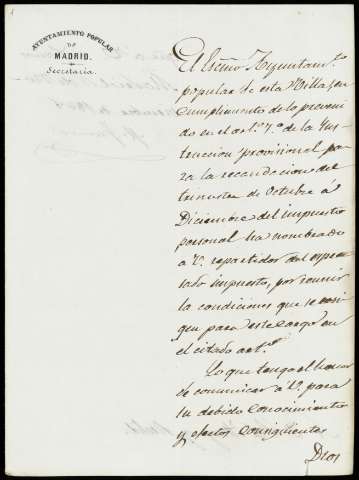 AYUNTAMIENTO POPULAR
DE
MADRID.
Secretaría.
El Escmo Ayuntam.to
popular de esta Villa, en
cumplimiento de lo preveni-
do en el art.o 7.o de la Yns-
truccion provisional pa-
ra la recaudacion del
trimestre de Octubre á
Diciembre del impuesto
personal ha nombrado
a V. repartidor del espre-
sado impuesto, por reunir
la condiciones que se exi-
gen para este cargo en
el citado art.o
Lo que tengo el honor
de comunicar á V. para
su debido conocimiento
y efectos consiguientes
Dios